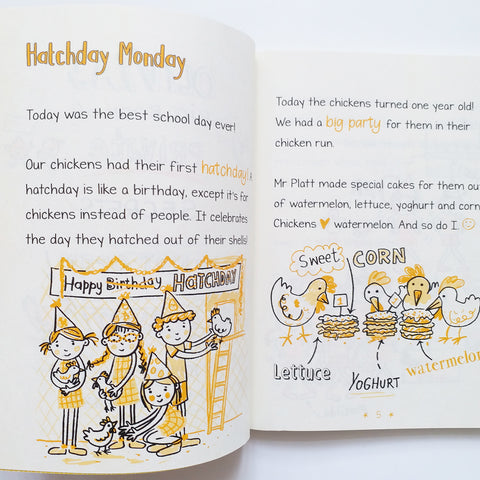 Hatchday Monday
Today was the best school day ever!
Our chickens had their first hatchday! A
hatchday is like a birthday, except it's for
chickens instead of people. It celebrates
the day they hatched out of their shells!
Happy Birthday HATCHDAY
Today the chickens turned one year old!
We had a big party for them in their
chicken run.
Mr Platt made special cakes for them out
of watermelon, lettuce, yoghurt and corn.
Chickens ♥ watermelon. And so do I. ☺
Sweet CORN
1
Lettuce
YOGHURT
watermelon
5